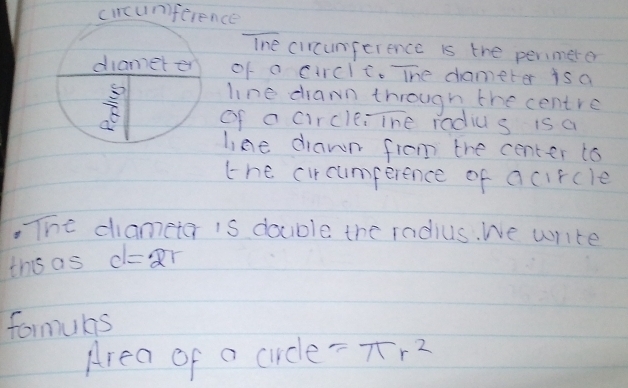 circumference
diameter
Radius
The circumference is the perimeter
of a circle. The diameter is a
line drawn through the centre
of a circle. The radius is a
line drawn from the center to
the circumference of a circle
. The diameter is double the radius. We write
this as d=2r
formulas
Area of a circle = πr²